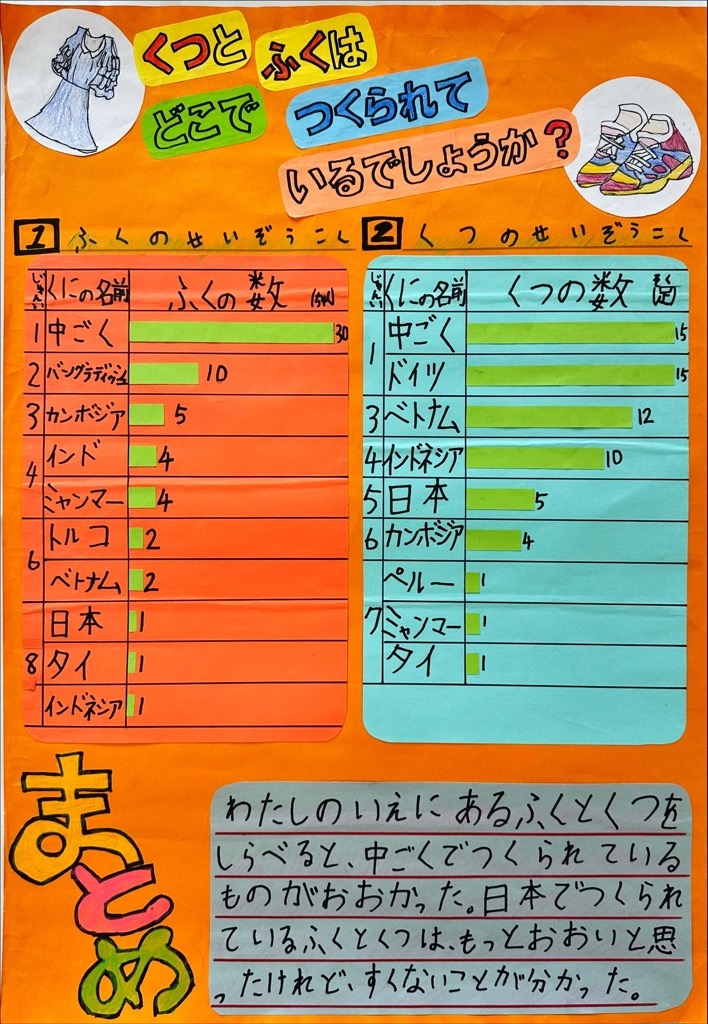 くつと ふくは
どこで つくられて
いるでしょうか?
1 ふくのせいぞうこく
じゅんい くにの名前 ふくの数 (まい)
1 中ごく 30
2 バングラディシュ 10
3 カンボジア 5
4 インド 4
ミャンマー 4
6 トルコ 2
ベトナム 2
8 日本 1
タイ 1
インドネシア 1
2 くつのせいぞうこく
じゅんい くにの名前 くつの数 (足)
1 中ごく 15
ドイツ 15
3 ベトナム 12
4 インドネシア 10
5 日本 5
6 カンボジア 4
7 ペルー 1
ミャンマー 1
タイ 1
まとめ
わたしのいえにあるふくとくつを
しらべると、中ごくでつくられている
ものがおおかった。日本でつくられ
ているふくとくつは、もっとおおいと思
ったけれど、すくないことが分かった。